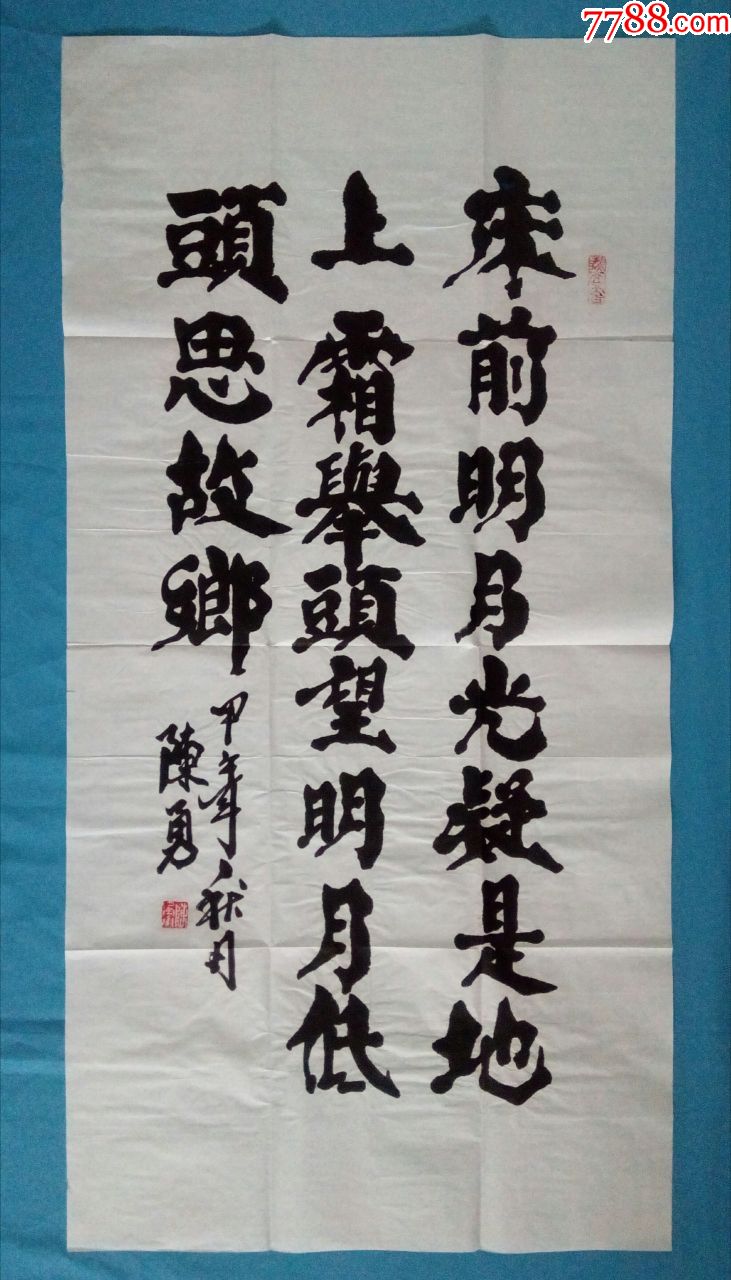 7788.com
床前明月光疑是地
上霜舉頭望明月低
頭思故鄉
甲午年秋月
陳勇